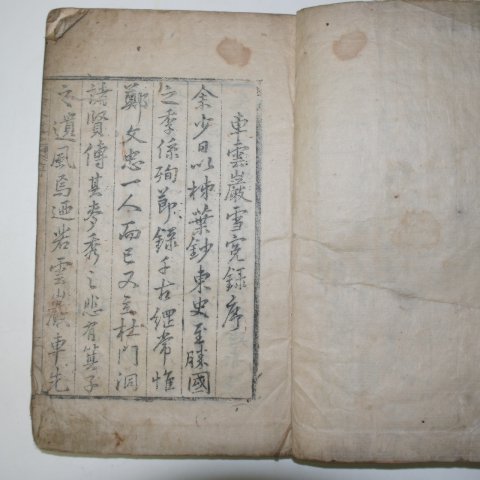 車雲巖雪寃錄序
余少日以桋葉鈔東史至勝國
之季係殉節錄千古綱常惟
鄭文忠一人而已又立杜門洞
諸賢傳其麥秀之悲有箕子
之遺風焉迺若雲巖車先